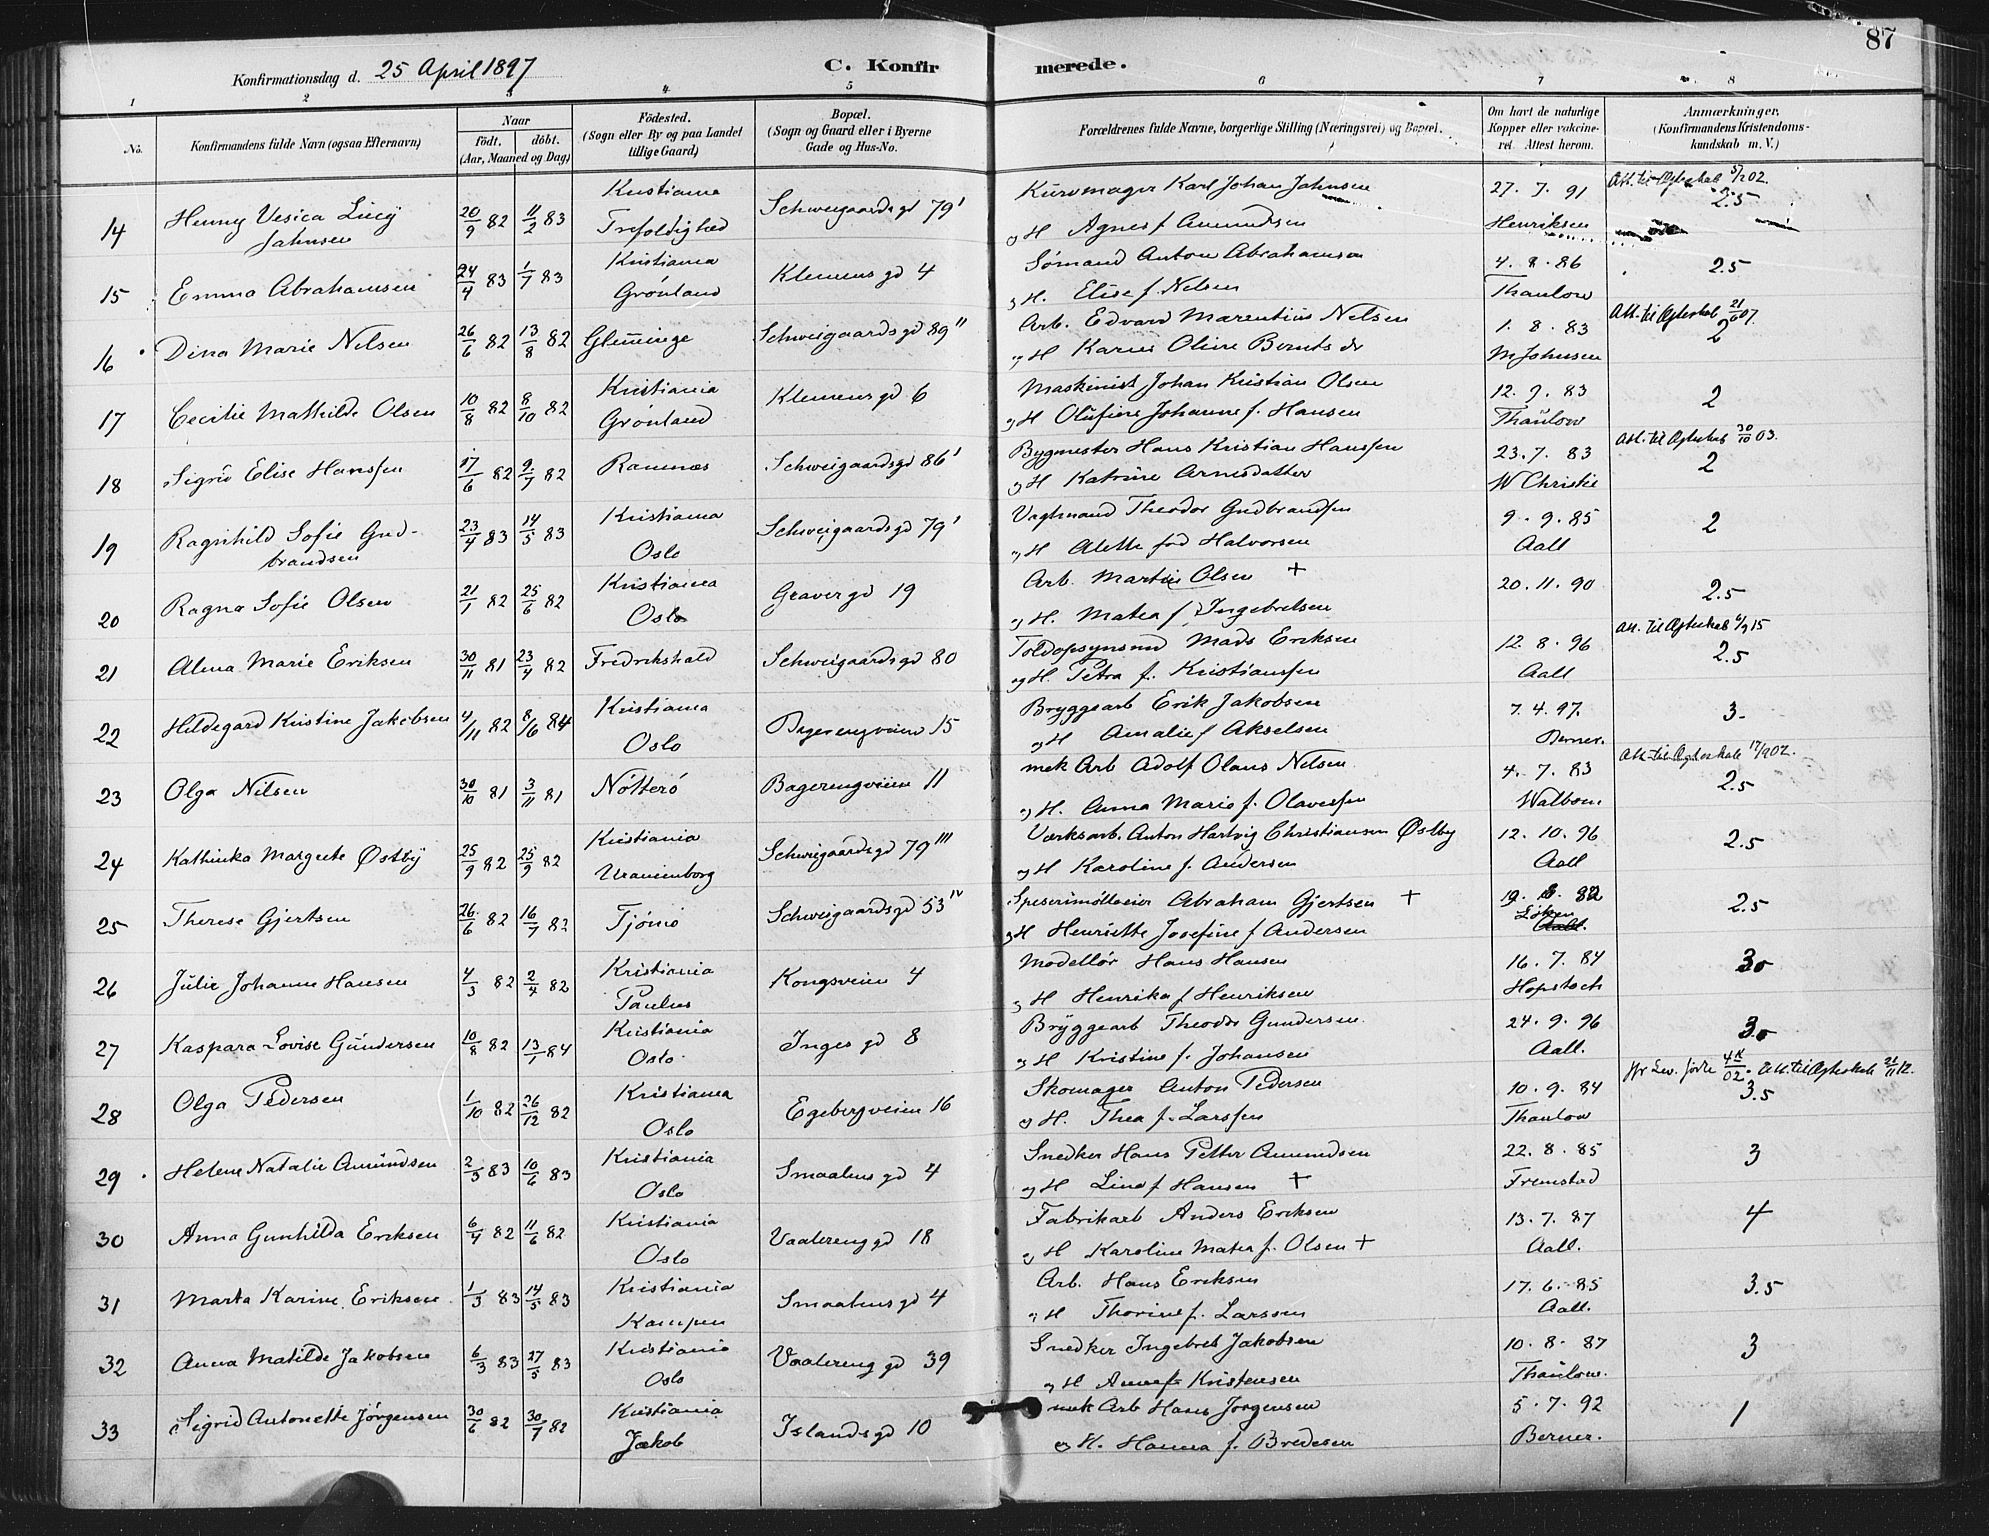 87
Konfirmationsdag d. 25 April 1897
C. Konfirmerede.
1 2 3 4 5 6 7 8
No. Konfirmandens fulde Navn (ogsaa Efternavn) Naar født. døbt. (Aar, Maaned og Dag) Fødested. (Sogn eller By og paa Landet tillige Gaard) Bopæl. (Sogn og Gaard eller i Byerne Gade og Hus-No. Forældrenes fulde Navne, borgerlige Stilling (Næringsvei) og Bopæl. Om havt de naturlige Kopper eller vakcineret. Attest herom. Anmærkninger. (Konfirmandens Kristendomskundskab m. V.)
14 Henny Vesica Lucy Jahnsen 20/9 82 11/2 83 Kristiania Trefoldighed Schweigaardsgd 79' Kurvmager Karl Johan Jahnsen
og H Agnes f Amundsen 27. 7. 91 Henriksen Att. til Ægteskab 5/7 02. 2.5
15 Emma Abrahamsen 24/4 83 1/7 83 Kristiania Grønland Klemens gd 4 Sømand Anton Abrahamsen
og H. Elise f. Nelsen 4. 8. 86 Thaulow 2.5
16 Dina Marie Nilsen 26/6 82 13/8 82 Glemminge Schweigaardsgd 89'' Arb. Edvard Marentius Nilsen
og H Karen Oline Berntsdr 1. 8. 83 M Johnsen Att. til Ægteskab 21/6 07. 2
17 Cecilie Mathilde Olsen 10/8 82 8/10 82 Kristiania Grønland Klemens gd 6 Maskinist Johan Kristian Olsen
og H Olufine Johanne f. Hansen 12. 9. 83 Thaulow 2
18 Sigrid Elise Hanssen 17/6 82 9/7 82 Ramnes Schweigaardsgd 86' Bygmester Hans Kristian Hanssen
og H Katrine Arnesdatter 23. 7. 83 W Christie Att. til Ægteskab 30/10 03. 2
19 Ragnhild Sofie Gudbrandsen 23/4 83 14/5 83 Kristiania Oslo Schweigaardsgd 79' Vagtmand Theodor Gudbrandsen
og H Alette fød Halvorsen 9. 9. 85 Aall 2
20 Ragna Sofie Olsen 21/1 82 25/6 82 Kristiania Oslo Graver gd 19 Arb. Martin Olsen +
og H. Matea f Ingebretsen 20. 11. 90 2.5
21 Alma Marie Eriksen 30/11 81 23/4 82 Fredrikshald Schweigaardsgd 80 Toldopsynsmd Mads Eriksen
og H. Petra f. Kristianssen 12. 8. 96 Aall Att. til Ægteskab 6/9 15 2.5
22 Hildegard Kristine Jakobsen 4/11 82 8/6 84 Kristiania Oslo Bagerengveien 15 Bryggearb Erik Jakobsen
og H Amalie f Akselsen 7. 4. 97. Berner. 3.
23 Olga Nilsen 30/10 81 3/11 81 Nøtterø Bagerengveien 11 mek Arb Adolf Olaus Nilsen
og H. Anna Marie f. Olavessen 4. 7. 83 Walbom Att. til Ægteskab 17/9 02. 2.5
24 Kathinka Margrete Østby 25/9 82 25/9 82 Kristiania Uranienborg Schweigaardsgd 79''' Værksarb. Anton Hartvig Christiansen Østby
og H Karoline f. Andersen 12. 10. 96 Aall 2.5
25 Therese Gjertsen 26/6 82 16/7 82 Tjømø Schweigaardsgd 53'''' Abraham Gjertsen +
og H Henriette Josefine f Andersen 19. 6. 82 Løken Aall. 2.5
26 Julie Johanne Hansen 4/3 82 2/4 82 Kristiania Paulus Kongsveien 4 Modellør Hans Hansen
og H Henrika f Henriksen 16. 7. 84 Hopstock 3.
27 Kaspara Lovise Gundersen 10/8 82 13/1 84 Kristiania Oslo Inges gd 8 Bryggearb Theodor Gundersen
og H Kristine f. Johansen 24. 9. 96 Aall. 3.
28 Olga Pedersen 1/10 82 26/12 82 Kristiania Oslo Egebergveien 16 Skomager Anton Pedersen
og H. Thea f. Larssen 10. 9. 84 Thaulow Att. til Ægteskab 21/11 12. 3.5
29 Helene Natalie Amundsen 2/3 83 10/6 83 Kristiania Oslo Smaalens gd 4 Snedker Hans Petter Amundsen
og H Lina f Hansen + 22. 8. 85 Fremstad 3
30 Anna Gunhilda Eriksen 6/4 82 11/6 82 Kristiania Oslo Vaalereng gd 18 Fabrikarb Anders Eriksen
og H Karoline Matea f. Olsen + 13. 7. 87 Aall. 4
31 Marta Karine Eriksen 1/3 83 14/5 83 Kristiania Kampen Smaalens gd 4 Arb. Hans Eriksen
og H Thorine f. Larssen 17. 6. 85 Aall. 3.5
32 Anna Matilde Jakobsen 6/3 83 27/5 83 Kristiania Oslo Vaalereng gd 39 Snedker Ingebret Jakobsen
og H Anne f Kristensen 10. 8. 87 Thaulow. 3
33 Sigrid Antonette Jørgensen 30/6 82 30/7 82 Kristiania Jakob Islands gd 10 mek Arb Hans Jørgensen
og H. Hanna f. Bredesen 5. 7. 92 Berner. 1